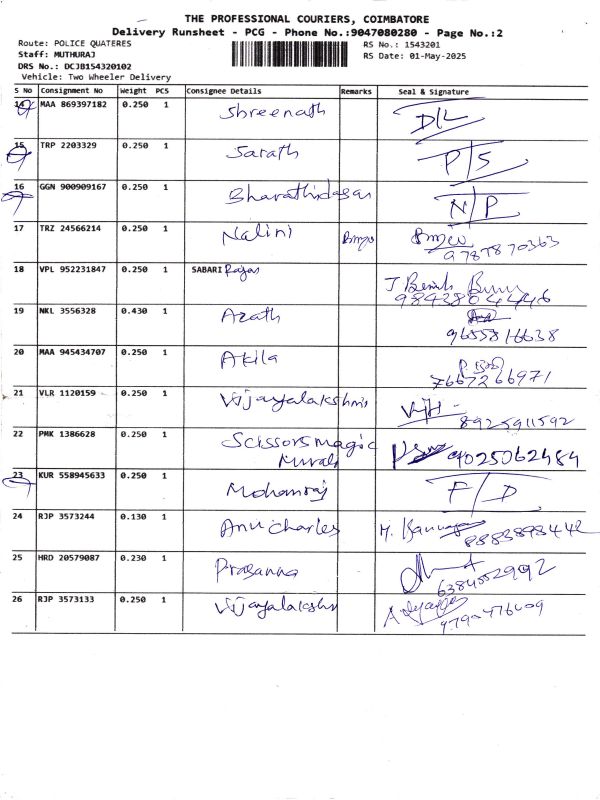 THE PROFESSIONAL COURIERS, COIMBATORE
Delivery Runsheet - PCG - Phone No.:9047080280 - Page No.:2
Route: POLICE QUATERES RS No.: 1543201
Staff: MUTHURAJ RS Date: 01-May-2025
DRS No.: DCJB154320102
Vehicle: Two Wheeler Delivery
S No Consignment No Weight PCS Consignee Details Remarks Seal & Signature
14 MAA 869397182 0.250 1 Shreenath D/L
15 TRP 2203329 0.250 1 Sarath P/S
16 GGN 900909167 0.250 1 Bharathidasan N/P
17 TRZ 24566214 0.250 1 Nalini 9787870363
18 VPL 952231847 0.250 1 SABARI Rajan J 9843804446
19 NKL 3556328 0.430 1 Azath 9655816638
20 MAA 945434707 0.250 1 Akila 7667266971
21 VLR 1120159 0.250 1 Vijayalakshmi 8925911592
22 PMK 1386628 0.250 1 Scissorsmagic 9025062484
23 KUR 558945633 0.250 1 Mohanraj F/D
24 RJP 3573244 0.130 1 Anu Charles M. 8883898442
25 HRD 20579087 0.230 1 Prasanna 6384552992
26 RJP 3573133 0.250 1 Vijayalakshmi 9790476409